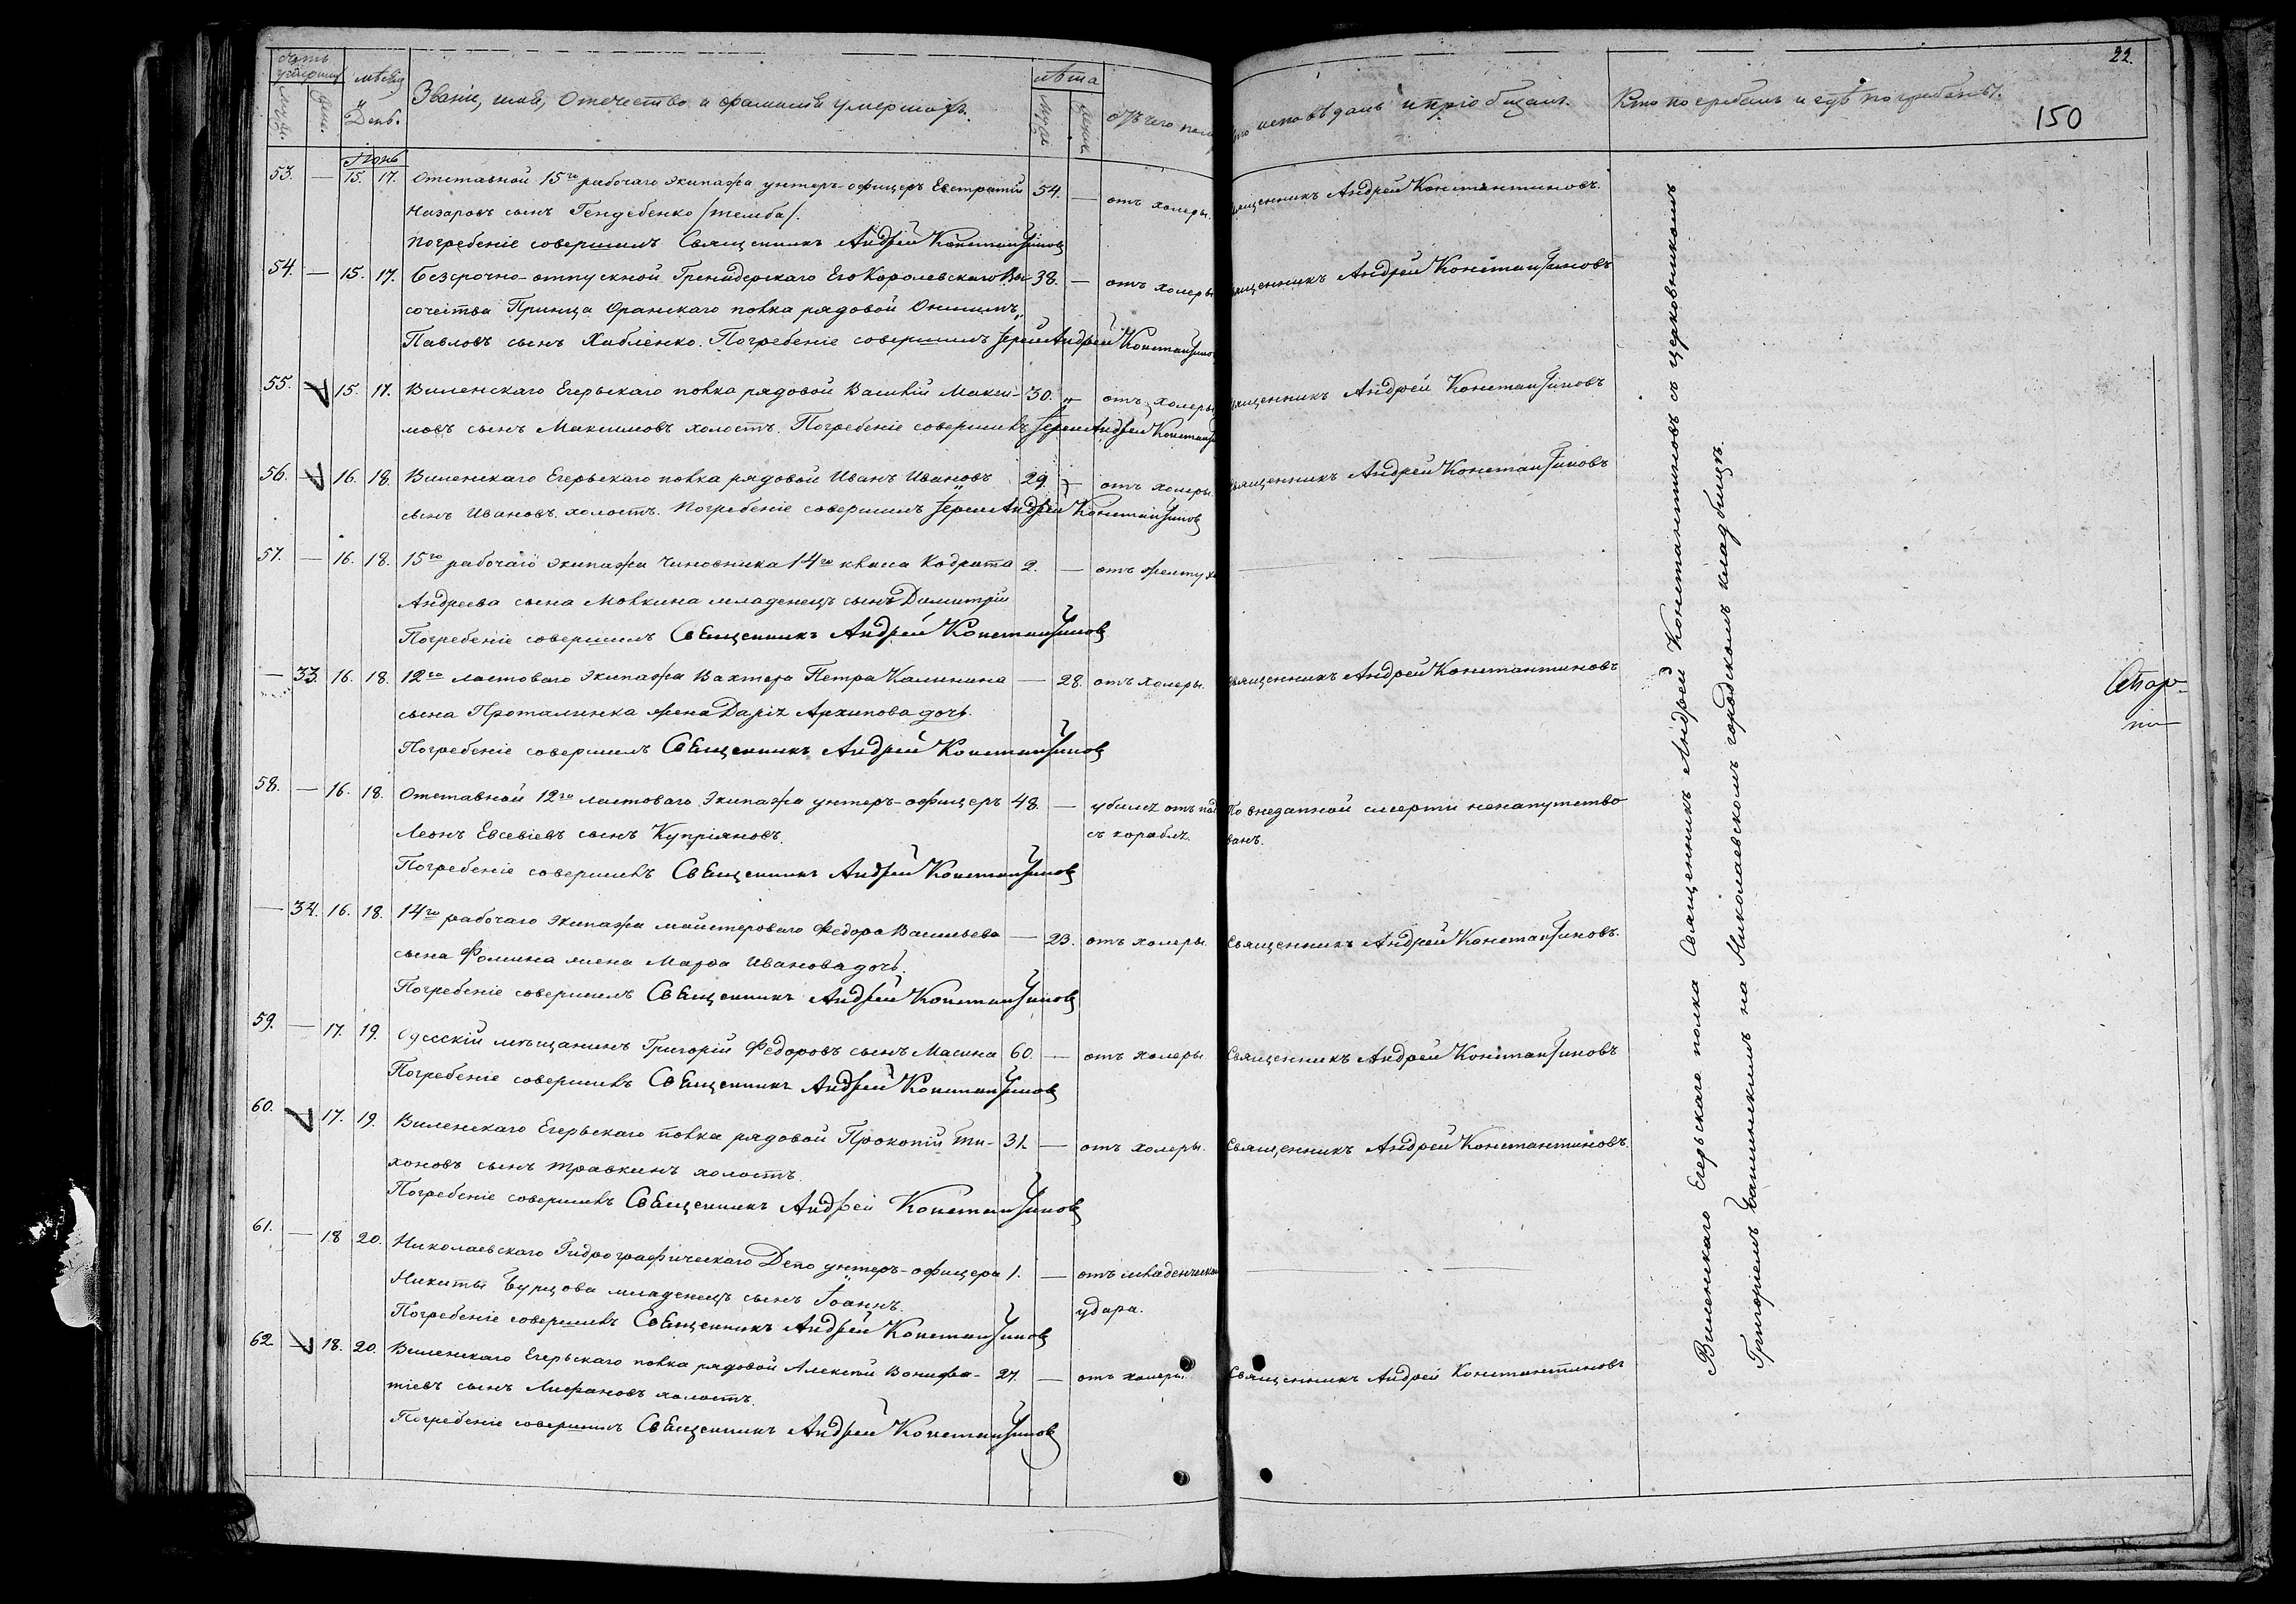 22.
150
Счетъ умершихъ
Мѣсяц и День.
Званіе, имя, Отечество и фамилія умершихъ.
лѣта
отъ чего пом
исповѣдалъ и пріобщалъ.
Кто погребалъ и гдѣ погребены.
Муж.
Жен.
Муж.
Женск.
Іюнь
53. — 15. 17. Отставной 15го рабочаго экипажа унтеръ-офицеръ Евстратій 54. — отъ холеры. Священникъ Андрей Константиновъ.
Назаровъ сынъ Гендебенко /темба/.
Погребеніе совершилъ Священникъ Андрей Константиновъ
54. — 15. 17. Безсрочно-отпускной Гренадерскаго Его Королевскаго Вы- 38. — отъ холеры Священникъ Андрей Константиновъ
сочества Принца Оранскаго полка рядовой Онисимъ
Павловъ сынъ Хибленко. Погребеніе совершилъ Іерей Андрей Константинов
55. — 15. 17. Виленскаго Егерьскаго полка рядовой Василій Макси- 30. „ отъ холеры Священникъ Андрей Константиновъ
мовъ сынъ Максимовъ холостъ. Погребеніе совершилъ Іерей Андрей Констант
56. — 16. 18. Виленскаго Егерьскаго полка рядовой Иванъ Ивановъ 29. — отъ холеры. Священникъ Андрей Константиновъ
сынъ Ивановъ. холостъ. Погребеніе совершилъ Іерей Андрей Константинов
57. — 16. 18. 15го рабочаго экипажа Чиновника 14го класа Кодрата 2. — отъ желтух —
Андреева сына Мовкина младенецъ сынъ Димитрій
Погребеніе совершилъ Священникъ Андрей Константинов
— 33. 16. 18. 12го ластоваго экипажа Вахтера Петра Калинина — 28. отъ холеры. Священникъ Андрей Константиновъ
сына Проталинка жена Дарія Архипова дочь.
Погребеніе совершилъ Священникъ Андрей Константинов
58. — 16. 18. Отставной 12го ластоваго экипажа унтеръ-офицеръ 48. — убился отъ пад По внезапной смерти ненапутство
Леонъ Евсевіевъ сынъ Купріяновъ. съ корабля. ванъ.
Погребеніе совершилъ Священникъ Андрей Константинов
— 34. 16. 18. 14го рабочаго экипажа мастероваго Федора Васильева — 23. отъ холеры. Священникъ Андрей Константиновъ.
сына Фомина жена Марѳа Иванова дочь.
Погребеніе совершилъ Священникъ Андрей Константинов
59. — 17. 19. Одесскій мѣщанинъ Григорій Федоровъ сынъ Масина 60. — отъ холеры Священникъ Андрей Константиновъ
Погребеніе совершилъ Священникъ Андрей Константинов
60. — 17. 19. Виленскаго Егерьскаго полка рядовой Прокопій Ти- 31. — отъ холеры. Священникъ Андрей Константиновъ.
хоновъ сынъ Травкинъ холостъ.
Погребеніе совершилъ Священникъ Андрей Константинов
61. — 18 20. Николаевскаго Гидрографическаго Депо унтеръ-офицера 1. — отъ младенческа —
Никиты Бурцова младенецъ сынъ Іоаннъ. удара.
Погребеніе совершилъ Священникъ Андрей Константинов
62 — 18. 20. Виленскаго Егерьскаго полка рядовой Алексѣй Вонифа- 27. — отъ холеры. Священникъ Андрей Константиновъ
тіевъ сынъ Лифановъ холостъ.
Погребеніе совершилъ Священникъ Андрей Константинов
Виленскаго Егерьскаго полка Священникъ Андрей Константиновъ съ церковникомъ
Григоріемъ на Николаевскомъ городскомъ кладбищѣ.